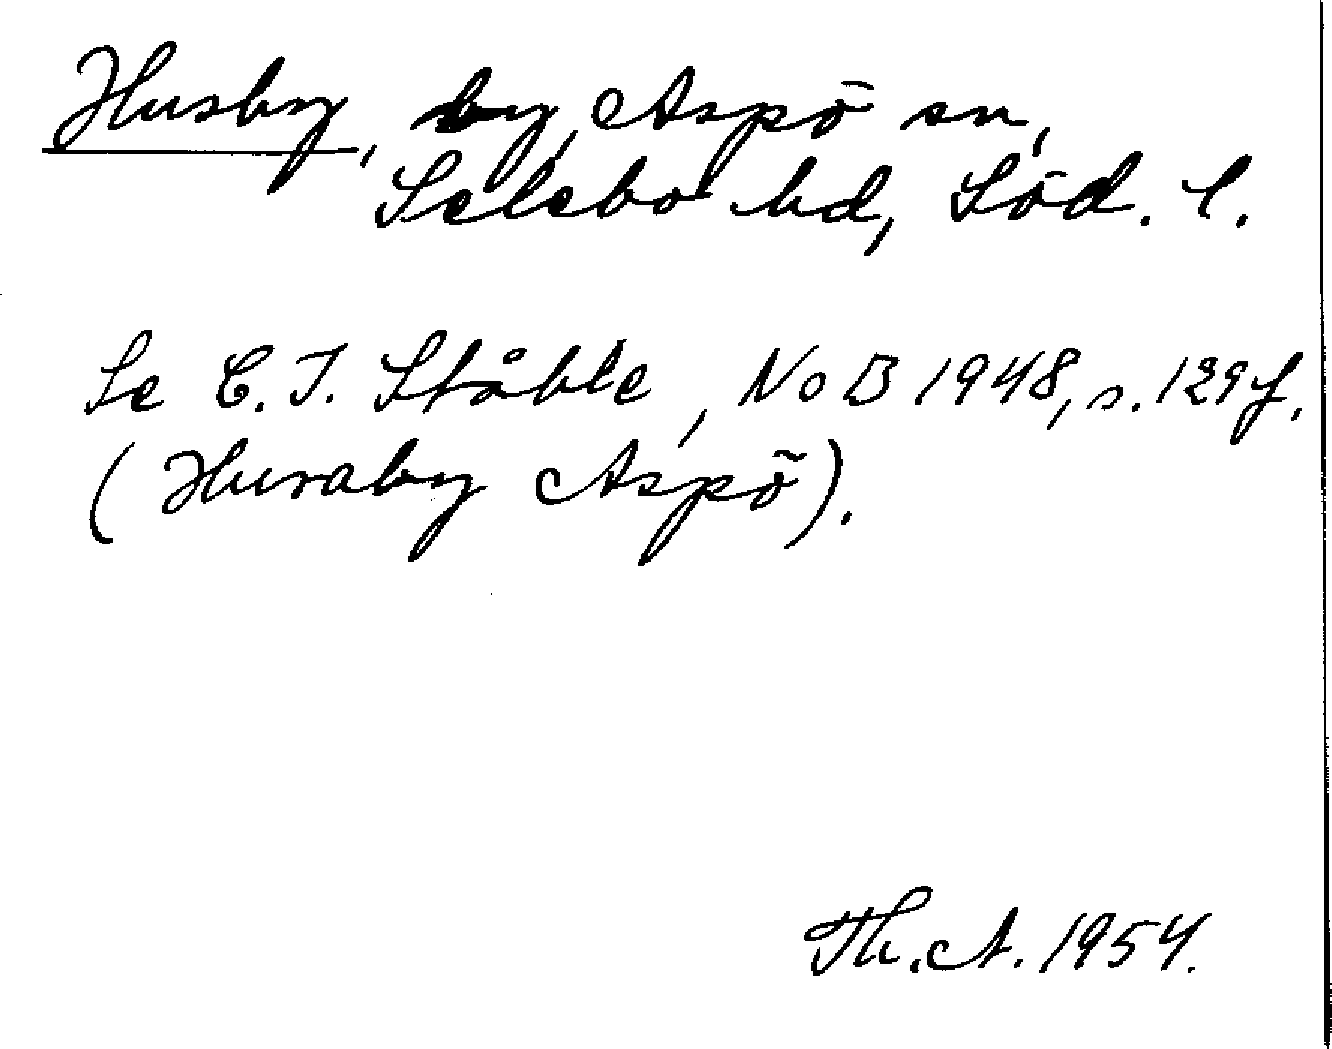 Husby, by, Aspö sn,
Selebo hd, Söd. l.
Se C. I. Ståhle, NoB 1948, s. 129 f.
(Husaby Aspö).
Th. A. 1954.